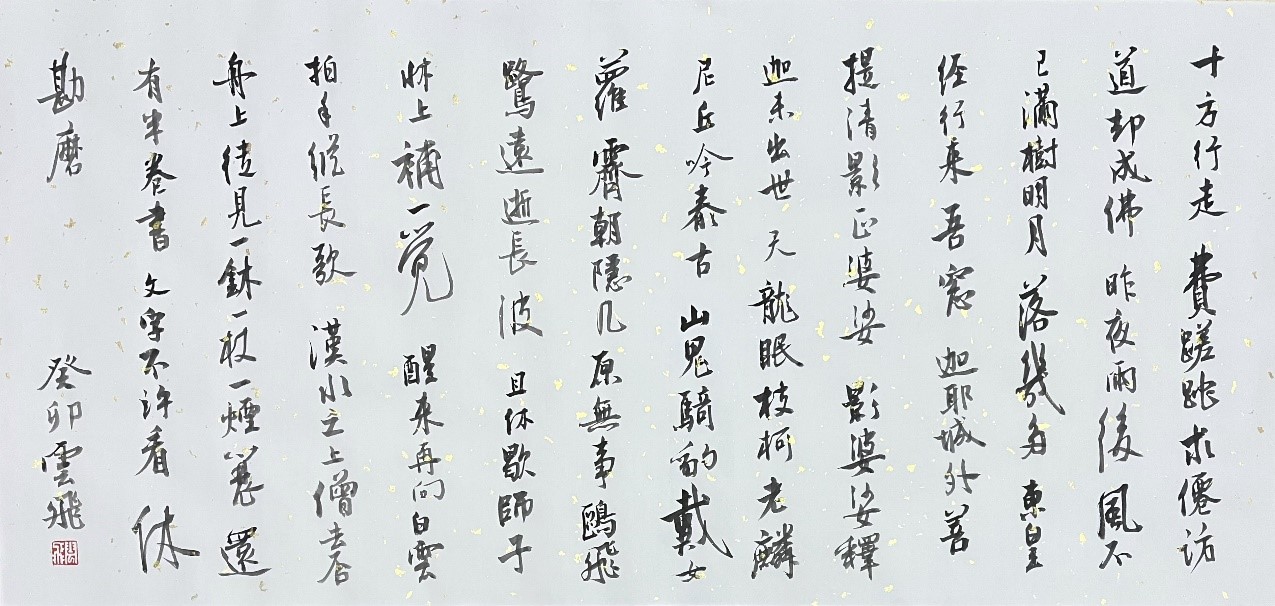 十方行走 費蹉跎求僊訪
道却成佛 昨夜雨後風不
已滿樹明月落幾多 東皇
經行來吾窓 迦耶城外菩
提清影正婆娑 影婆娑釋
迦未出世 天龍眠枝柯老麟
尼丘吟泰古 山鬼騎豹戴女
蘿 霽朝隱几原無事鷗飛
鷺遠逝長波 且休歇師子
牀上補一覺 醒來再向白雲
拍手縱長歌 漢水之上僧
舟上徒見一鉢一杖一煙蓑 還
有半卷書 文字不許看 休
勘磨
癸卯雲飛